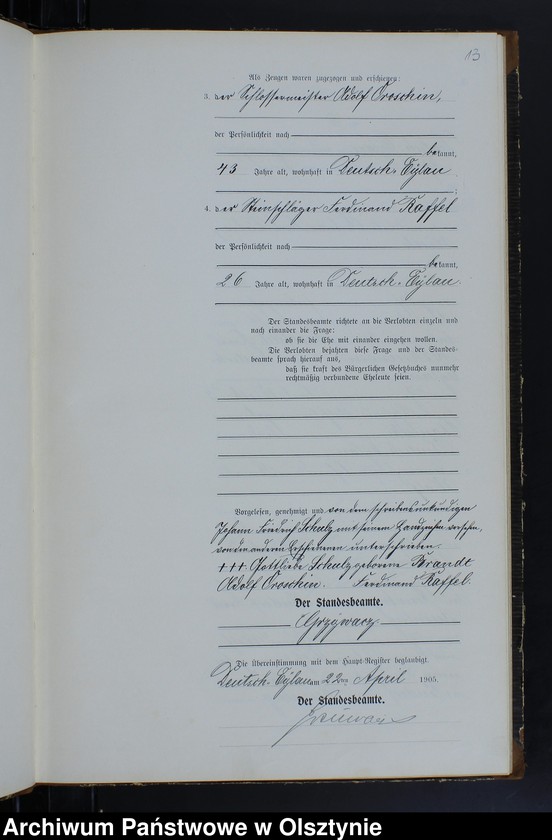 13
Als Zeugen waren zugezogen und erschienen:
3. der Schlossermeister Adolf Oroschin,
der Persönlichkeit nach
bekannt,
43 Jahre alt, wohnhaft in Deutsch-Eylau
;
4. der Steinschläger Ferdinand Kaffel
der Persönlichkeit nach
bekannt,
26 Jahre alt, wohnhaft in Deutsch-Eylau.
Der Standesbeamte richtete an die Verlobten einzeln und
nach einander die Frage:
ob sie die Ehe mit einander eingehen wollen.
Die Verlobten bejahten diese Frage und der Standes-
beamte sprach hierauf aus,
daß sie kraft des Bürgerlichen Gesetzbuches nunmehr
rechtmäßig verbundene Eheleute seien.
Vorgelesen, genehmigt und von dem schreibensunkundigen
Johann Friedrich Schulz mit seinem Handzeichen versehen,
von den anderen Erschienenen unterschrieben.
+++. Gottliebe Schulz geborene Brandt
Adolf Oroschin. Ferdinand Kaffel.
Der Standesbeamte.
Grzywacz
Die Übereinstimmung mit dem Haupt-Register beglaubigt
Deutsch-Eylau am 22ten April 1905.
Der Standesbeamte.
Archiwum Państwowe w Olsztynie